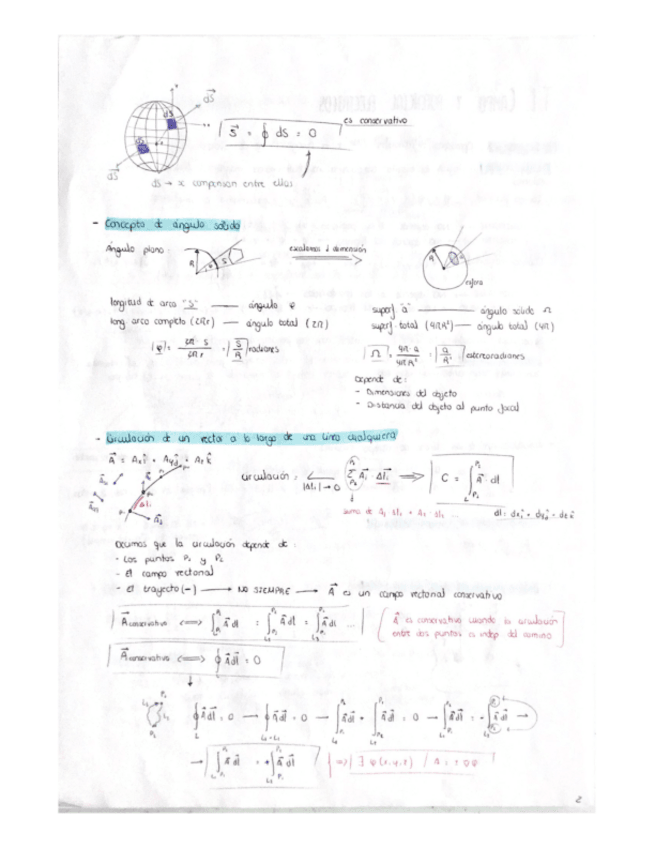 dS
dS
S = ∮ dS = 0 es conservativo
dS
dS
dS → x compensan entre ellas
- Concepto de ángulo sólido
Ángulo plano: escalamos 1 dimensión
R S R
esfera
longitud de arco "S" — ángulo φ
long arco completo (2πr) — ángulo total (2π)
superf "a" — ángulo sólido Ω
superf. total (4πR²) — ángulo total (4π)
|φ| = 2π · S / 2πr = S/R radianes
Ω = 4π · a / 4πR² = a/R² estereorradianes
Depende de:
- Dimensiones del objeto
- Distancia del objeto al punto focal
- Circulación de un vector a lo largo de una línea cualquiera
A = Axi + Ayj + Azk
circulación: |Δli| → 0 Σ Ai · Δli ⟹ C = ∫ A · dl
Δli
dl: dxi + dyj + dzk
Decimos que la circulación depende de:
- Los puntos P₁ y P₂
- El campo vectorial
- El trayecto (-) → NO SIEMPRE → A es un campo vectorial conservativo
A conservativo <=> ∫ A dl = ∫ A dl = ∫ A dl ...
A es conservativo cuando la circulación
entre dos puntos es indep del camino
A conservativo <=> ∮ A dl = 0
∮ A dl = 0 → ∮ A dl = 0 → ∫ A dl + ∫ A dl = 0 → ∫ A dl = - ∫ A dl →
→ ∫ A dl = + ∫ A dl => ∃ φ(x,y,z) / A = ± ∇φ
2